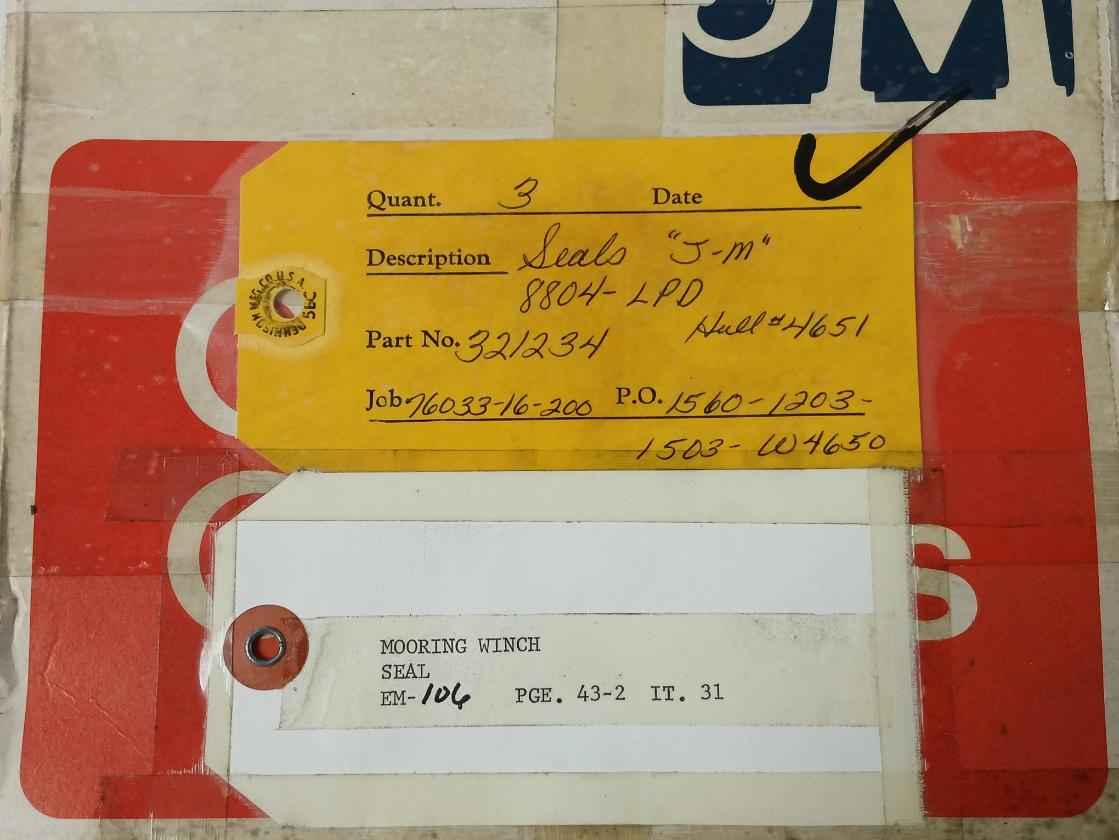 JM
Quant. 3 Date
Description Seals "J-M"
8804-LPD
Hull #4651
Part No. 321234
Job 76033-16-200 P.O. 1560-1203-
1503-W4650
DENNISON MFG.CO.U.S.A.
5BC
s
MOORING WINCH
SEAL
EM-106 PGE. 43-2 IT. 31